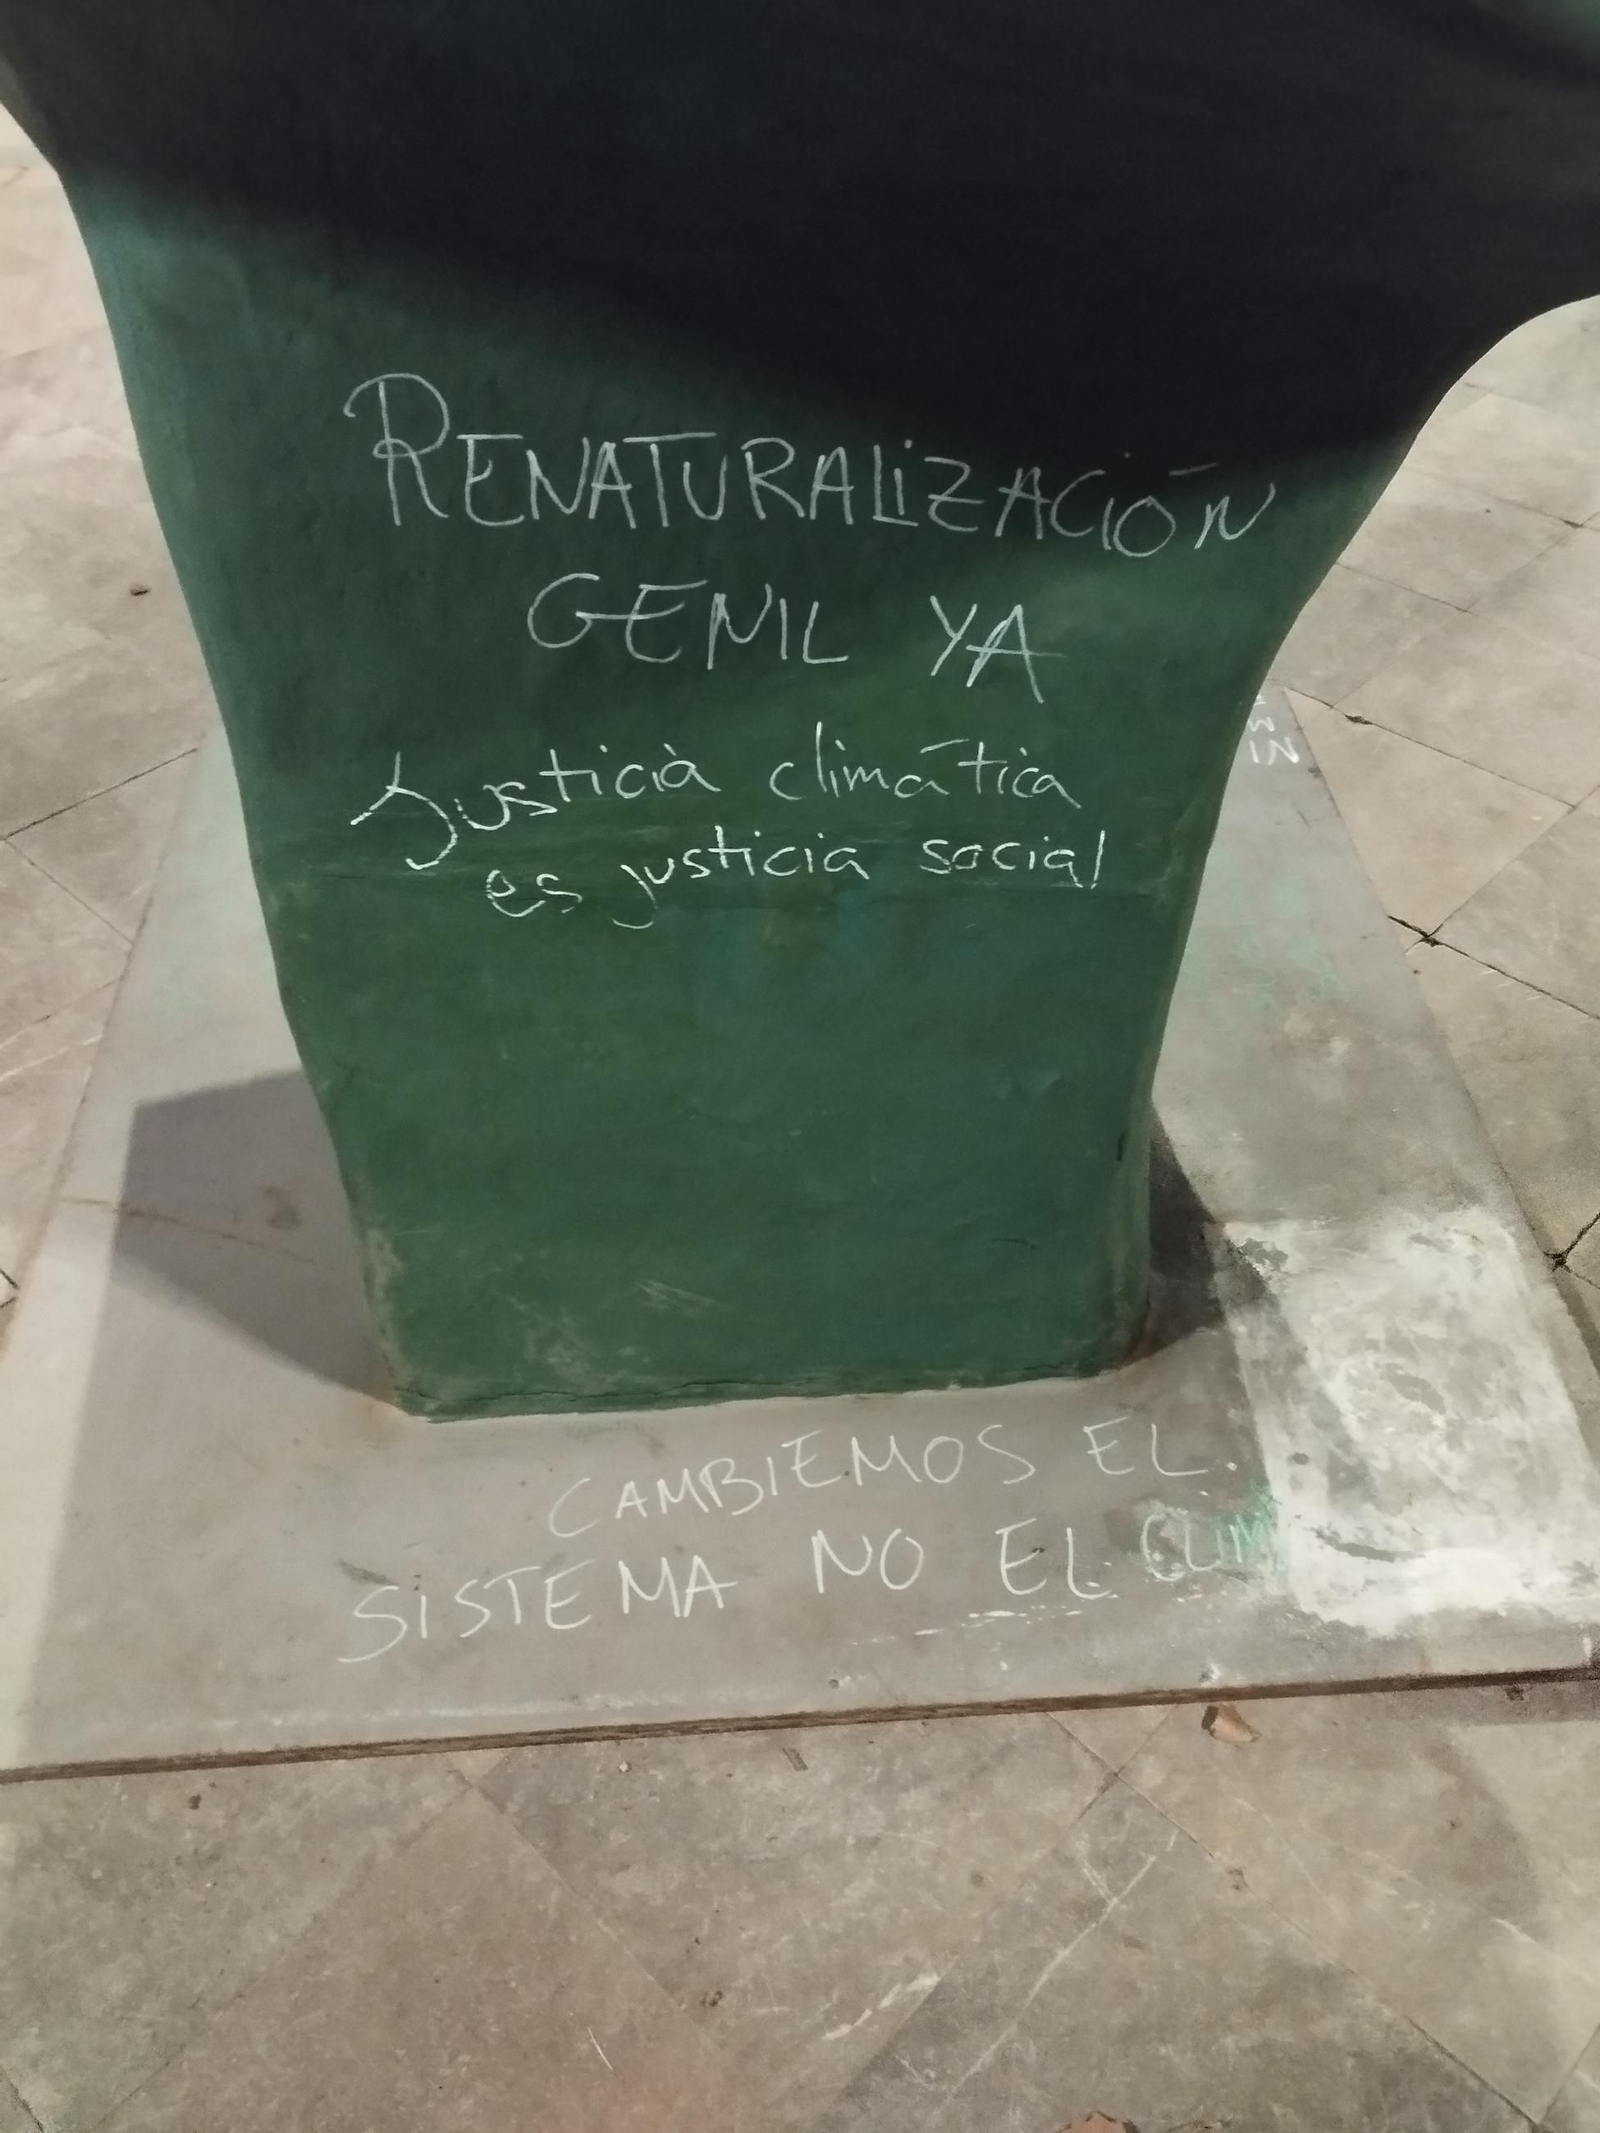 RENATURALIZACIÓN
GENIL YA
Justicia climática
es justicia social
CAMBIEMOS EL
SISTEMA NO EL CLIM